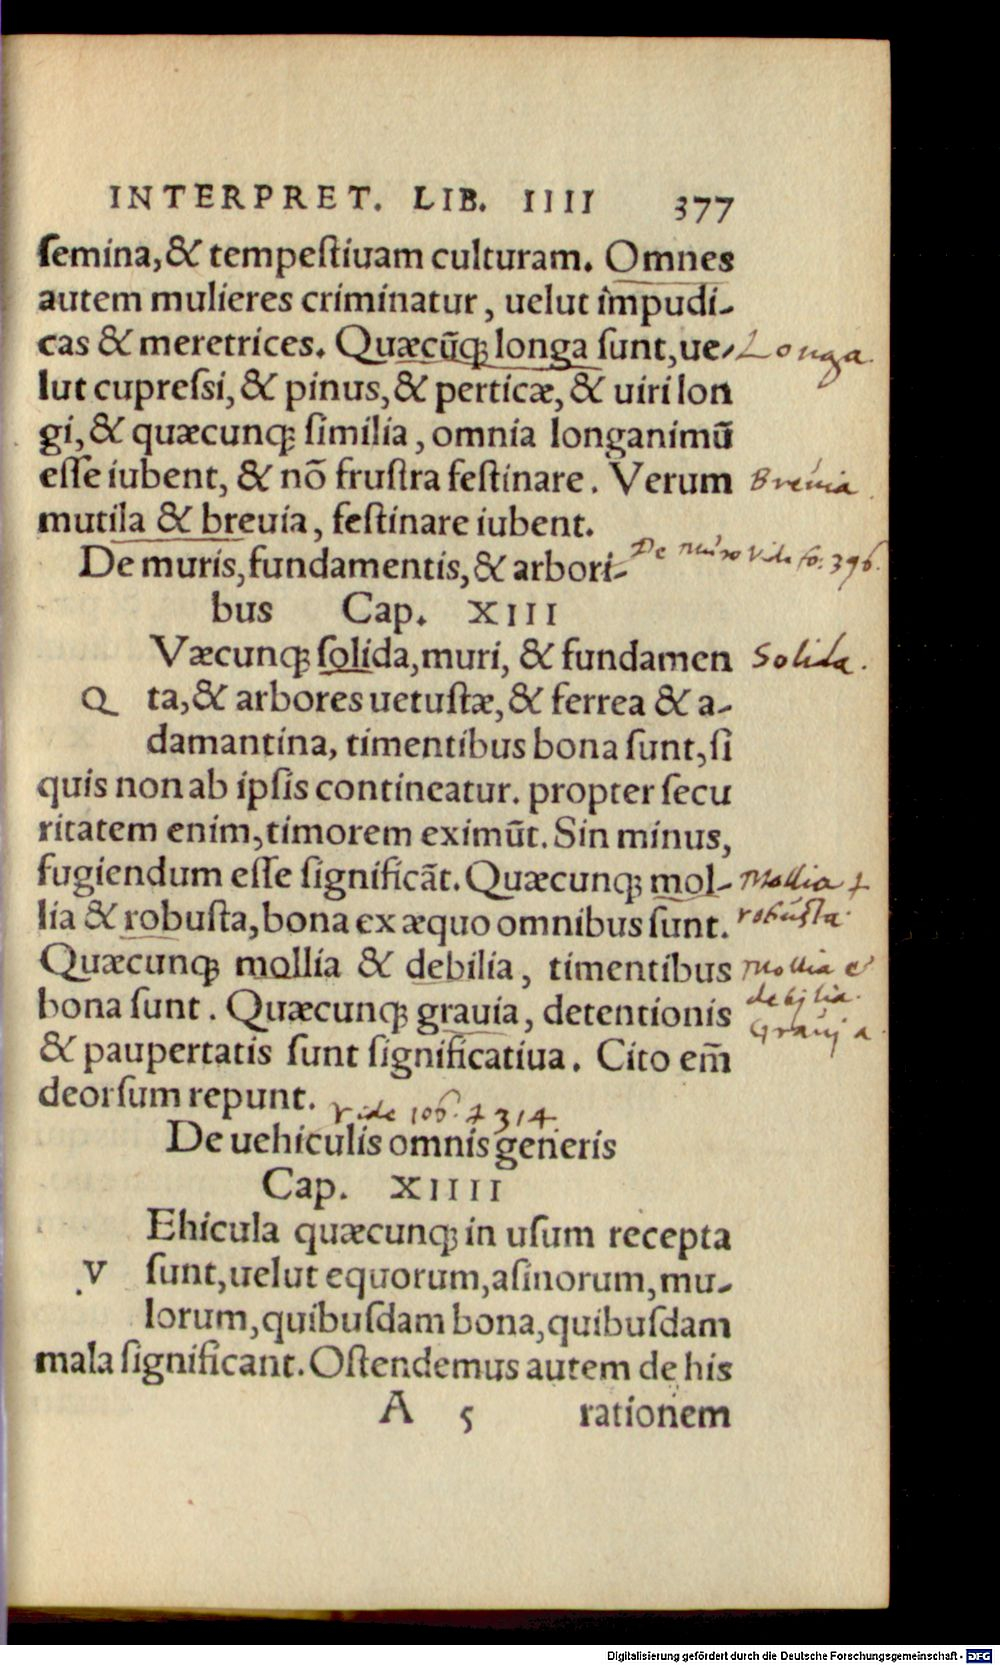 INTERPRET. LIB. IIII 377
semina, & tempestiuam culturam. Omnes
autem mulieres criminatur, uelut impudi-
cas & meretrices. Quæcūq; longa sunt, ue- Longa
lut cupressi, & pinus, & perticæ, & uiri lon
gi, & quæcunq; similia, omnia longanimū
esse iubent, & nō frustra festinare. Verum Breuia.
mutila & breuia, festinare iubent.
De muris, fundamentis, & arbori- De muro Vide fo. 396.
bus Cap. XIII
Væcunq; solida, muri, & fundamen Solida.
Q ta, & arbores uetustæ, & ferrea & a-
damantina, timentibus bona sunt, si
quis non ab ipsis contineatur. propter secu
ritatem enim, timorem eximūt. Sin minus,
fugiendum esse significāt. Quæcunq; mol- Mollia &
lia & robusta, bona ex æquo omnibus sunt. robusta.
Quæcunq; mollia & debilia, timentibus Mollia &
bona sunt. Quæcunq; grauia, detentionis debilia.
Grauia
& paupertatis sunt significatiua. Cito em̄
deorsum repunt. Vide 106. & 314
De uehiculis omnis generis
Cap. XIIII
Ehicula quæcunq; in usum recepta
V sunt, uelut equorum, asinorum, mu-
lorum, quibusdam bona, quibusdam
mala significant. Ostendemus autem de his
A 5 rationem
Digitalisierung gefördert durch die Deutsche Forschungsgemeinschaft - DFG